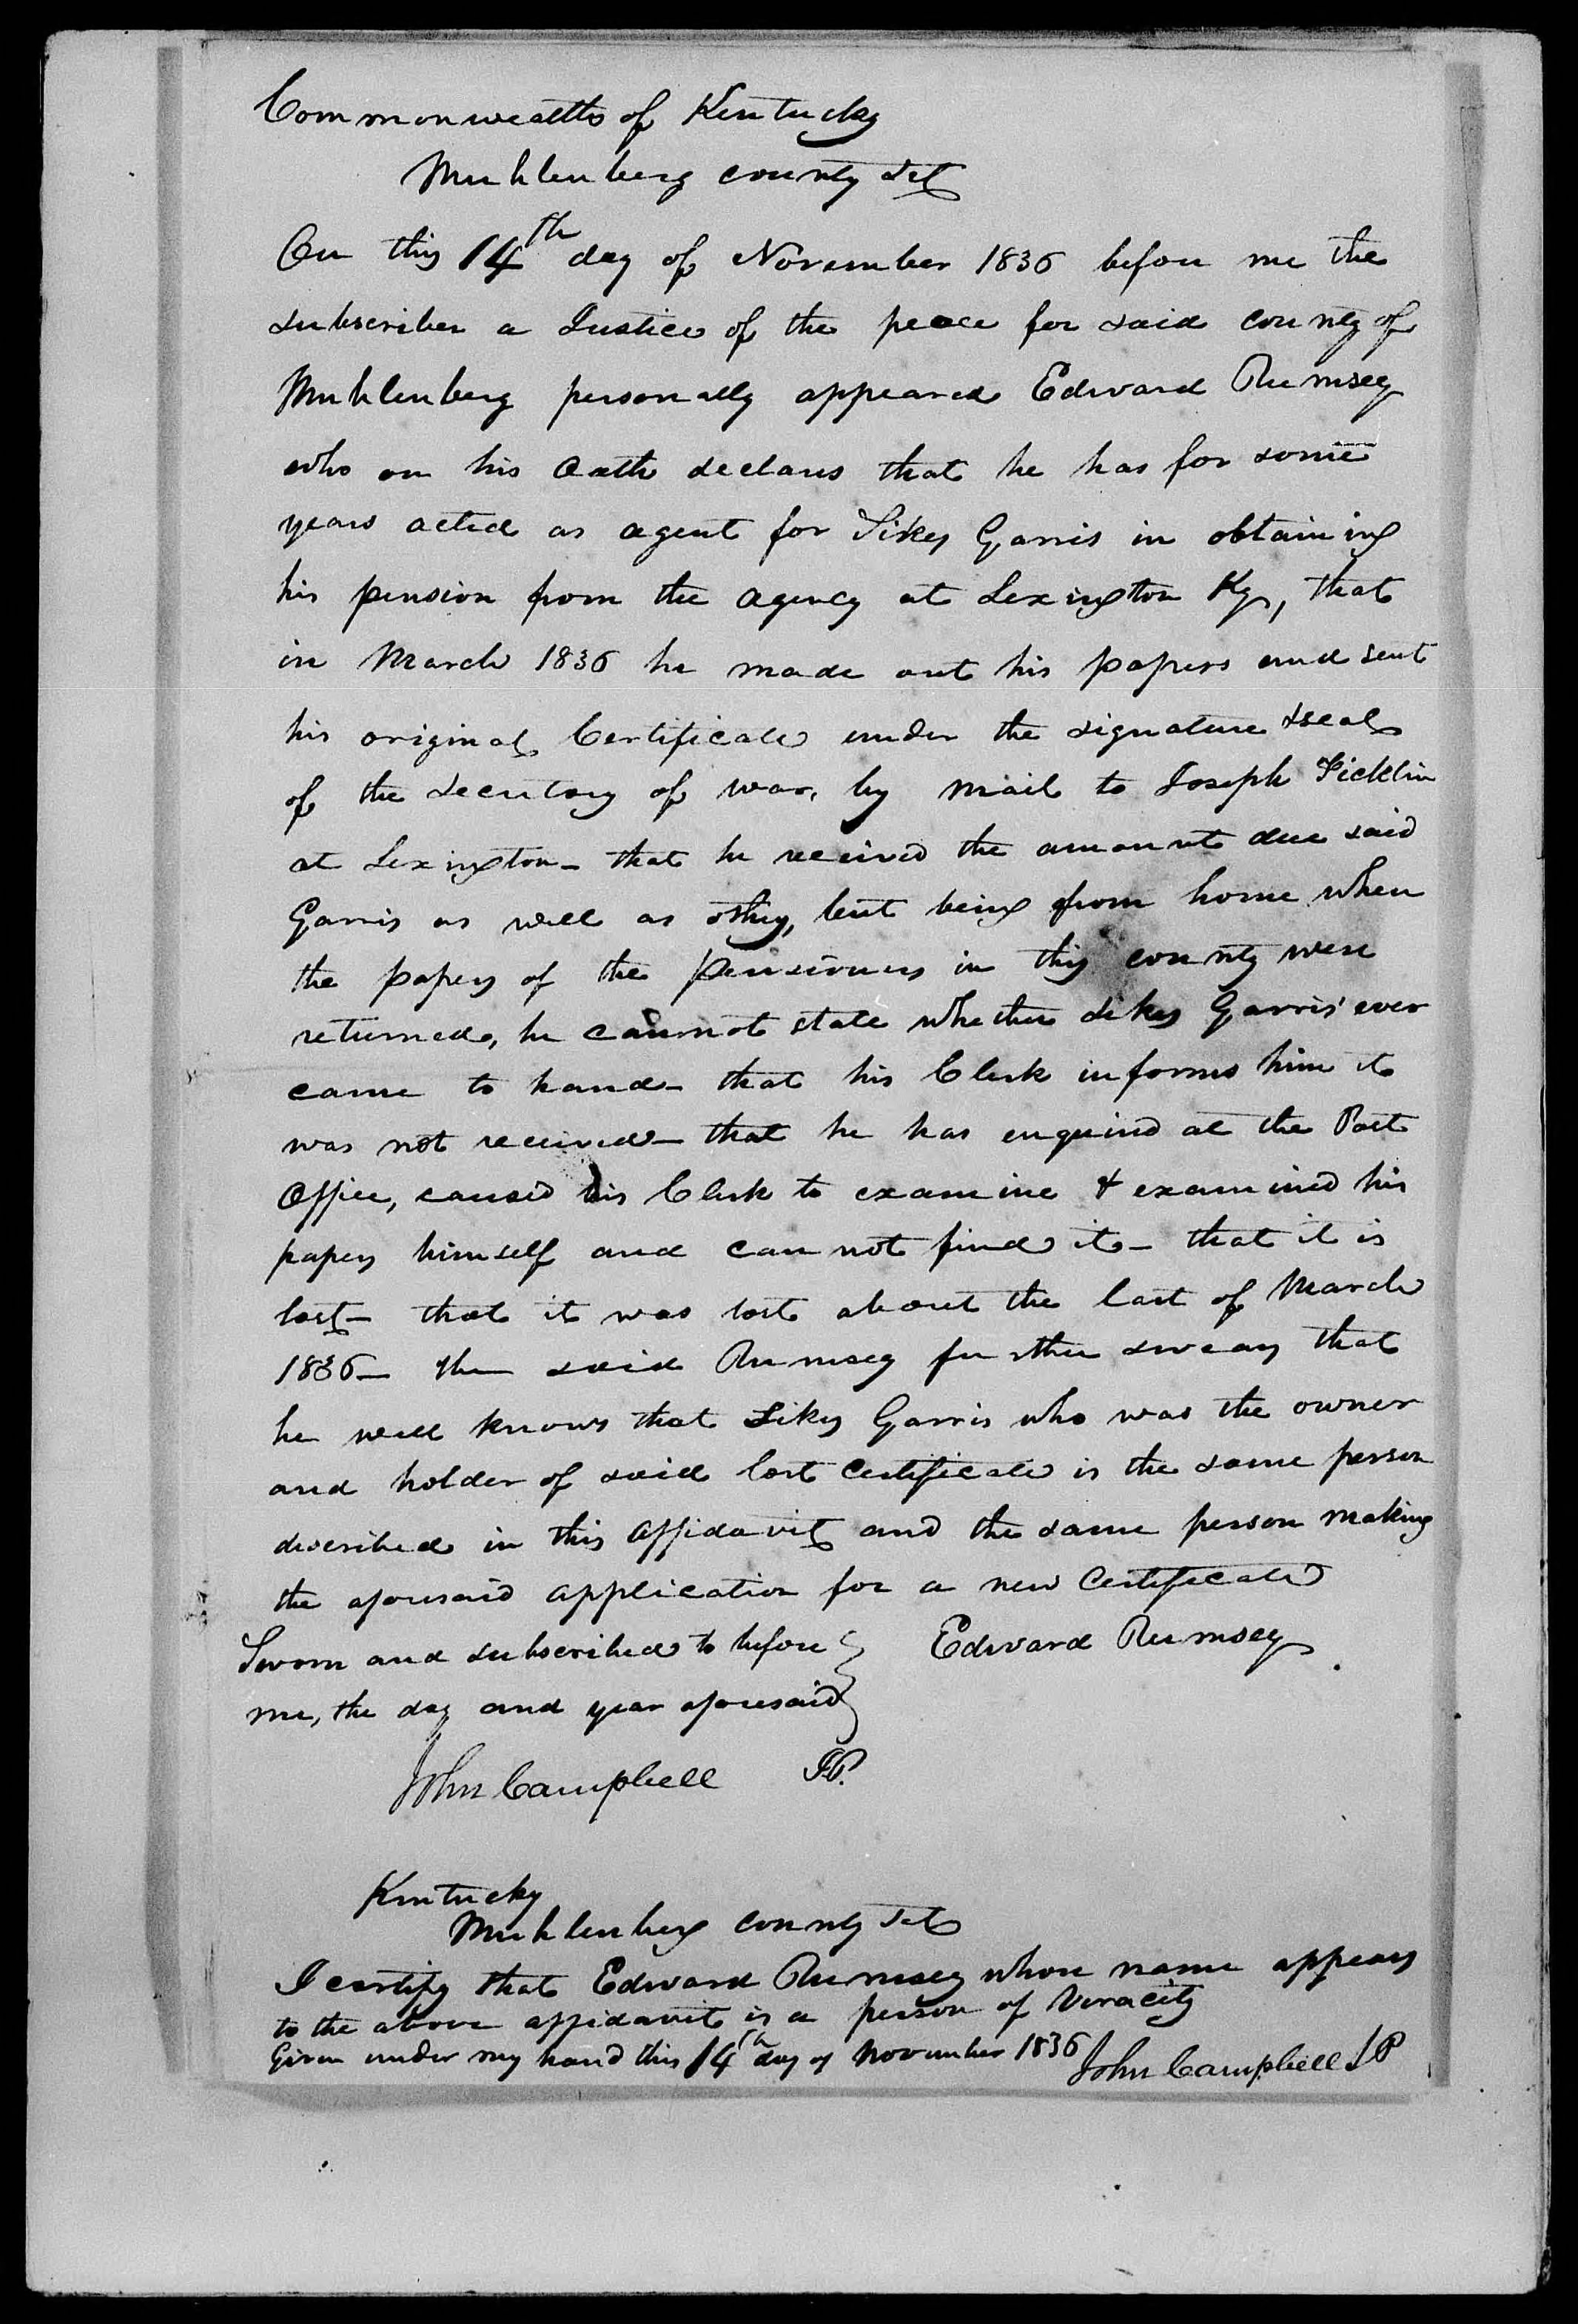 Commonwealth of Kentucky
Muhlenberg county Sct
On this 14th day of November 1836 before me the
subscriber a Justice of the peace for said county of
Muhlenberg personally appeared Edward Rumsey
who on his Oath declares that he has for some
years acted as agent for Sikes Garris in obtaining
his pension from the agency at Lexington Ky, that
in March 1836 he made out his papers and sent
his original Certificate under the signature & seal
of the Secretary of war, by mail to Joseph Ficklin
at Lexington - that he received the amount due said
Garris as well as others, but being from home when
the papers of the pensioners in this county were
returned, he cannot state whether Sikes Garris' ever
came to hand - that his Clerk informs him it
was not received - that he has enquired at the Post
Office, caused his Clerk to examine & examined his
papers himself and can not find it - that it is
lost - that it was lost about the last of March
1836 - the said Rumsey further swears that
he well knows that Sikes Garris who was the owner
and holder of said lost certificate is the same person
described in this affidavit and the same person making
the aforesaid application for a new Certificate
Sworn and subscribed to before Edward Rumsey
me, the day and year aforesaid
John Campbell J.P.
Kentucky
Muhlenberg county Sct
I certify that Edward Rumsey whose name appears
to the above affidavit is a person of Veracity
Given under my hand this 14th day of November 1836 John Campbell J P